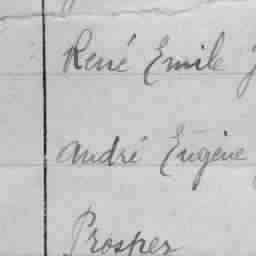 René Emile
André Eugène
Prosper